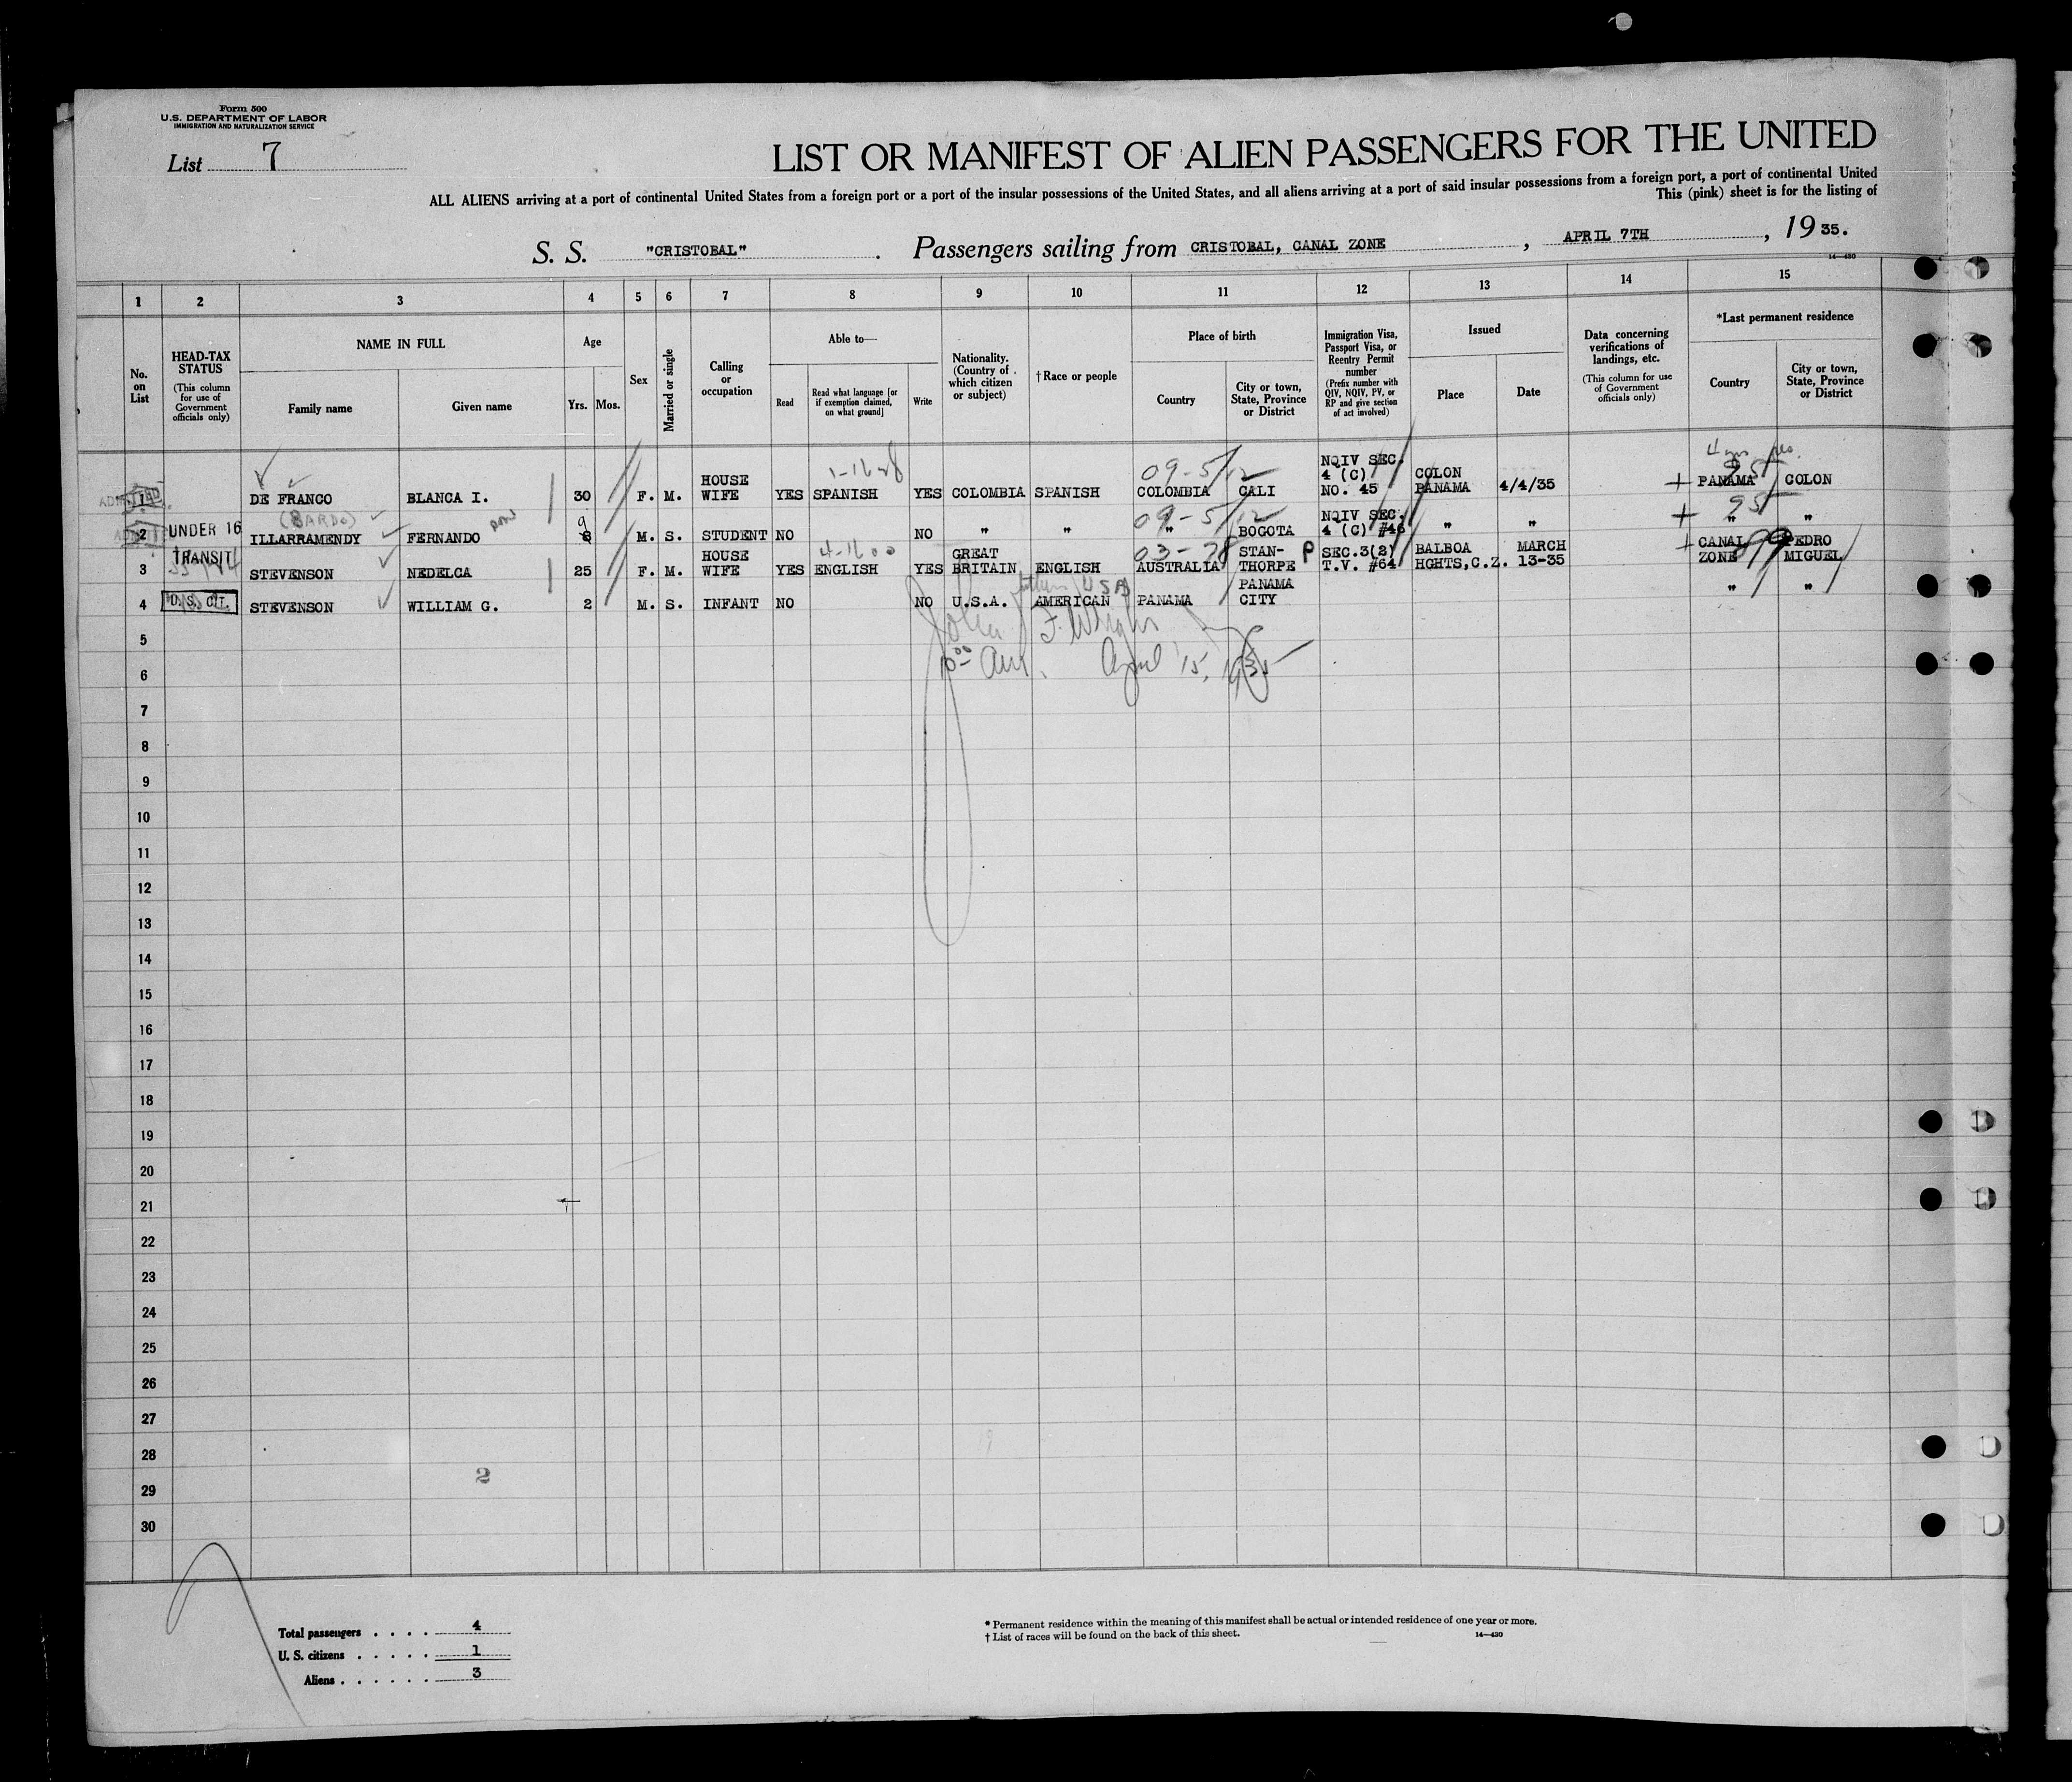 Form 500
U.S. DEPARTMENT OF LABOR
IMMIGRATION AND NATURALIZATION SERVICE
List 7
LIST OR MANIFEST OF ALIEN PASSENGERS FOR THE UNITED
ALL ALIENS arriving at a port of continental United States from a foreign port or a port of the insular possessions of the United States, and all aliens arriving at a port of said insular possessions from a foreign port, a port of continental United
This (pink) sheet is for the listing of
S. S. "CRISTOBAL" . Passengers sailing from CRISTOBAL, CANAL ZONE , APRIL 7TH , 19 35.
14—430
1 2 3 4 5 6 7 8 9 10 11 12 13 14 15
No. on List
HEAD-TAX STATUS
(This column for use of Government officials only)
NAME IN FULL
Family name Given name
Age
Yrs. Mos.
Sex
Married or single
Calling or occupation
Able to—
Read
Read what language [or if exemption claimed, on what ground]
Write
Nationality. (Country of which citizen or subject)
†Race or people
Place of birth
Country
City or town, State, Province or District
Immigration Visa, Passport Visa, or Reentry Permit number
(Prefix number with QIV, NQIV, PV, or RP and give section of act involved)
Issued
Place Date
Data concerning verifications of landings, etc.
(This column for use of Government officials only)
*Last permanent residence
Country
City or town, State, Province or District
1 DE FRANCO BLANCA I. 30 F. M. HOUSE WIFE YES SPANISH YES COLOMBIA SPANISH 09-5/12 COLOMBIA CALI NQIV SEC. 4 (C) NO. 45 COLON PANAMA 4/4/35 + PANAMA 95 COLON
2 UNDER 16 (BARDO) ILLARRAMENDY FERNANDO 9 8 M. S. STUDENT NO NO " " 09-5/12 " BOGOTA NQIV SEC. 4 (C) #46 " " + 95 " "
3 TRANSIT STEVENSON NEDELCA 25 F. M. HOUSE WIFE YES ENGLISH YES GREAT BRITAIN ENGLISH AUSTRALIA STAN-THORPE P SEC.3(2) T.V. #64 BALBOA HGHTS,C.Z. MARCH 13-35 + CANAL ZONE PEDRO MIGUEL
4 U.S. CIT. STEVENSON WILLIAM G. 2 M. S. INFANT NO NO U.S.A. AMERICAN PANAMA PANAMA CITY " "
5
6 April 15, 1935
7
8
9
10
11
12
13
14
15
16
17
18
19
20
21
22
23
24
25
26
27
28
2
29
30
Total passengers . . . . 4
U. S. citizens . . . . . 1
Aliens . . . . . . 3
* Permanent residence within the meaning of this manifest shall be actual or intended residence of one year or more.
† List of races will be found on the back of this sheet.
14—430